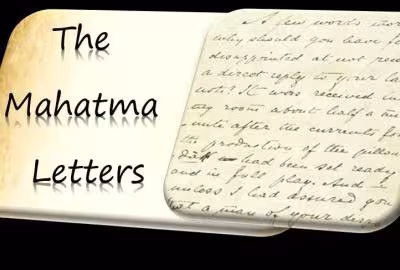 The
Mahatma
Letters
A few words more
why should you have fe
disappointed at not rece
a direct reply to your las
note? It was received in
my room about half a mi
nute after the currents for
the production of the pillow
had been set ready
and in full play. And
unless I had assured you
at a man of your dispo